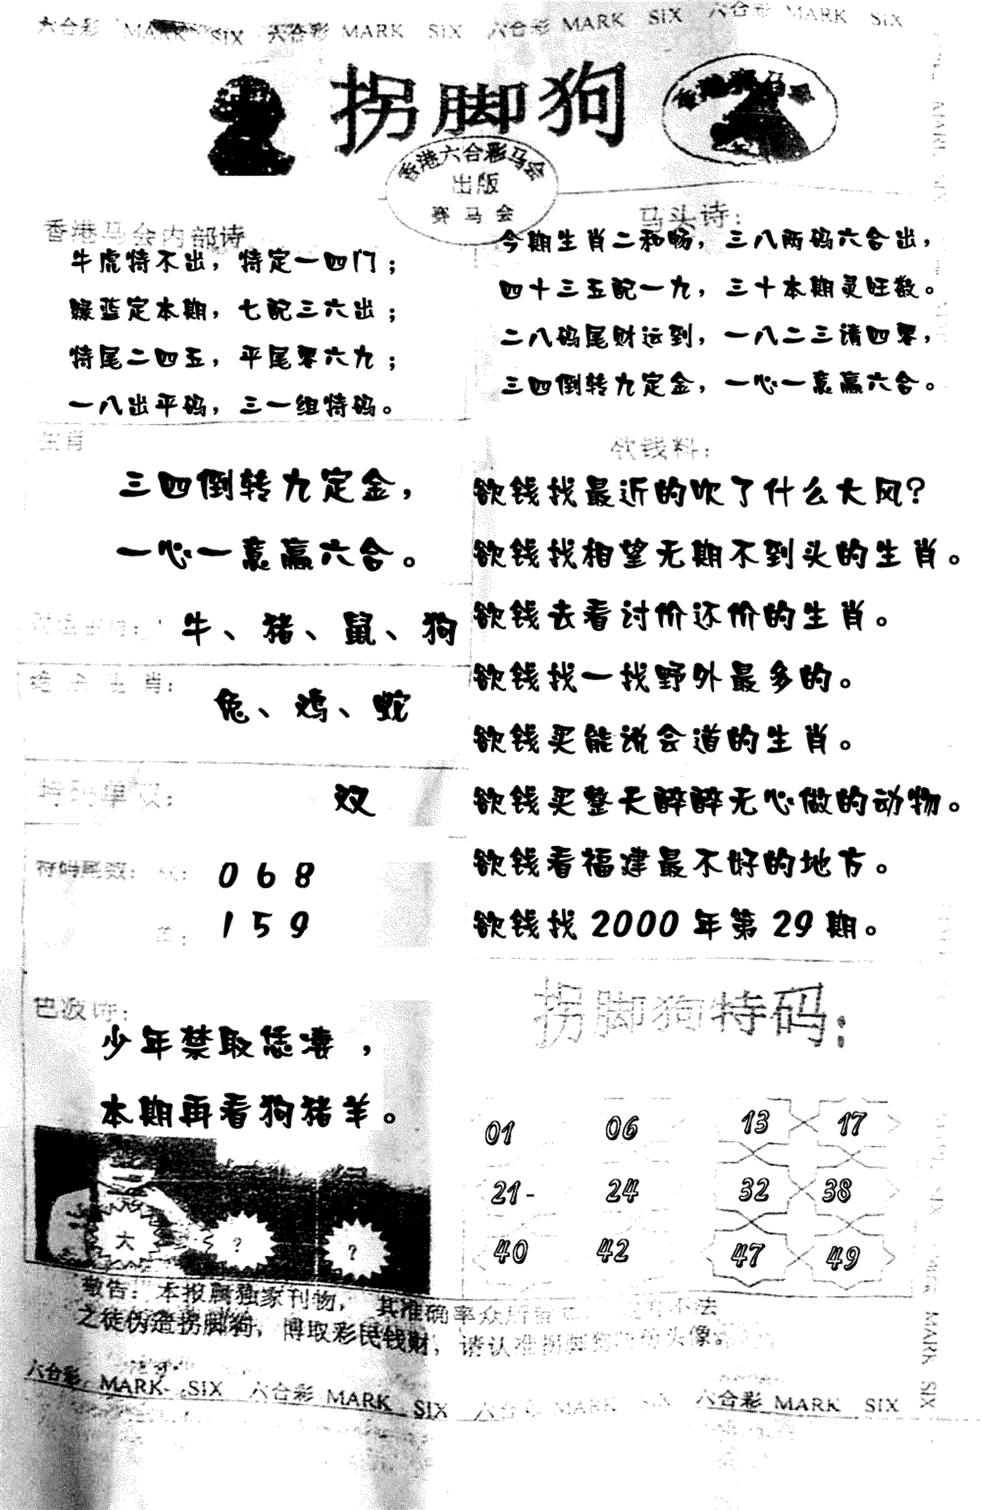 六合彩 MARK SIX 六合彩 MARK SIX 六合彩 MARK SIX 六合彩 MARK SIX
拐脚狗
香港赛马会
香港六合彩马会
出版
赛马会
香港马会内部诗
牛虎特不出，特定一四门；
绿蓝定本期，七配三六出；
特尾二四五，平尾零六九；
一八出平码，三一组特码。
马头诗：
今期生肖二和畅，三八两码六合出，
四十三五配一九，三十本期灵旺数。
二八码尾财运到，一八二三请四零，
三四倒转九定金，一心一意赢六合。
生肖
三四倒转九定金，
一心一意赢六合。
牛、猪、鼠、狗
绝杀生肖：
兔、鸡、蛇
特码单双：
双
特码尾数：
0 6 8
1 5 9
色波诗：
少年禁取恁凄，
本期再看狗猪羊。
大
?
?
钦钱料：
欲钱找最近的吹了什么大风？
欲钱找相望无期不到头的生肖。
欲钱去看讨价还价的生肖。
欲钱找一找野外最多的。
欲钱买能说会道的生肖。
欲钱买整天醉醉无心做的动物。
欲钱看福建最不好的地方。
欲钱找 2000 年第 29 期。
拐脚狗特码：
01 06 13 17
21- 24 32 38
40 42 47 49
敬告：本报属独家刊物，其准确率众所 不法
之徒伪造拐脚狗，博取彩民钱财，请认准拐脚狗 头像。
六合彩 MARK SIX 六合彩 MARK SIX 六合彩 MARK SIX 六合彩 MARK SIX
MARK SIX